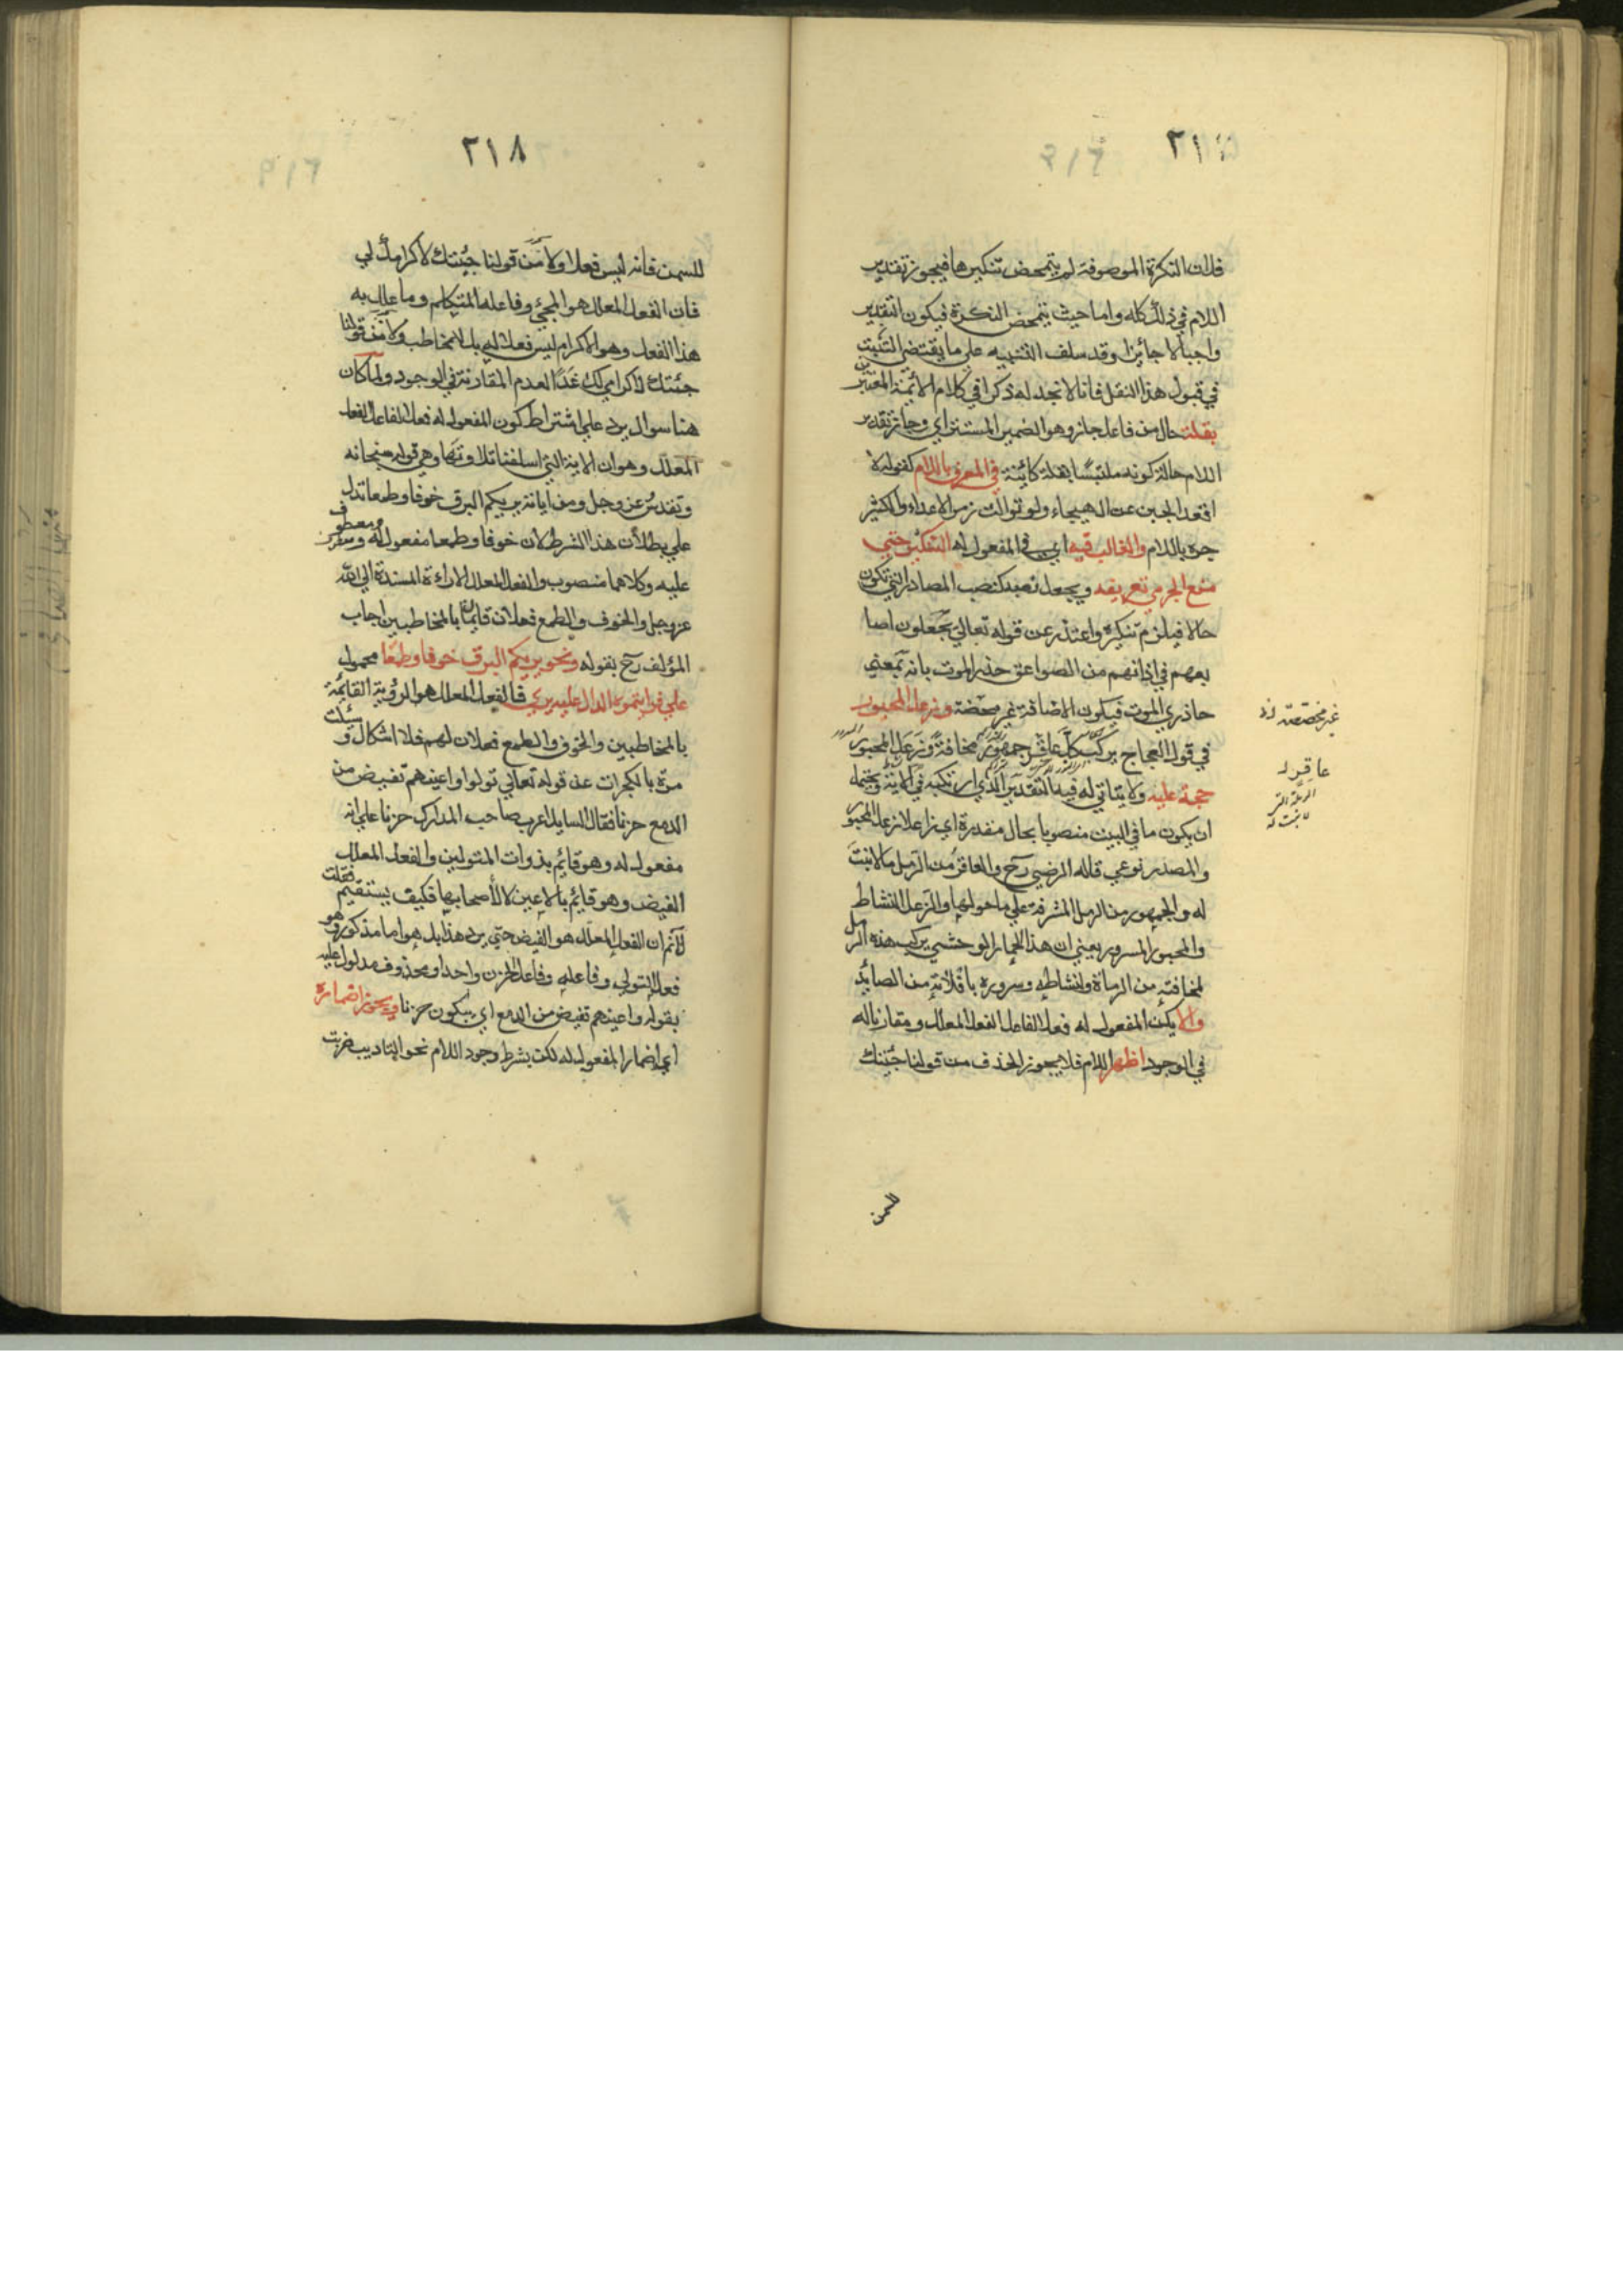 ٢١
فلان النكرة الموصوفة لم يتمحض تنكيرها فيجوز تقدير
اللام في ذلك كله واما حيث يتمحض النكرة فيكون التقدير
واجبا لا جائزا وقد سلف التنبيه علي ما يقتضي التثبت
في قبول هذا النقل فانا لا نجد له ذكرا في كلام الائمة المعتبرين
بقلة حال من فاعل جاز وهو الضمير المستتر اي وجاز تقدير
اللام حالة كونه ملتبسًا بقلة كائنة في المعرف باللام كقوله لا
اقعد الجبن عن الهيجاء ولو توالت زمر الاعداء والكثير
جره باللام والغالب فيه اي في المفعول له التنكير حتي
منع الجرمي تعريفه ويجعل نصبه كنصب المصادر التي تكون
حالا فيلزم تنكيره واعتذر عن قوله تعالي يجعلون اصا
بعهم في اذانهم من الصواعق حذر الموت بانه بمعني
حاذري الموت فيكون الاضافة غير محضة وزعل المحبور
في قول العجاج يركب كل عاقر جمهور مخافة وزعل المحبور
حجة عليه ولا يتاتي له فيه التقدير الذي ارتكبه في الآية ويحتمل
ان يكون ما في البيت منصوبا بحال مقدرة اي زاعلا زعل المحبور
والمصدر نوعي قاله الرضي رح والعاقر من الرمل ما لا ينبت
له والجمهور من الرمل المشرفة علي ما حولها والزعل النشاط
والمحبور المسرور يعني ان هذا الحمار الوحشي يركب هذه الرمل
لمخافته من الرماة ولنشاطه وسروره بافلاته من الصائد
والا يكن المفعول له فعلا لفاعل الفعل المعلل ومقارنا له
في الوجود اظهر اللام فلا يجوز الحذف من قولنا جئتك
للسمن
غير مختصة له
عاقر له
الرملة التي
لا تنبت له
٢١٨
للسمن فانه ليس فعلا ولا من قولنا جئتك لاكرامك لي
فان الفعل المعلل هو المجيء وفاعله المتكلم وما علل به
هذا الفعل وهو الاكرام ليس فعلا له بل للمخاطب ولا من قولنا
جئتك لاكرامي لك غدًا لعدم المقارنة في الوجود ولما كان
هنا سوال يرد علي اشتراط كون المفعول له فعلا لفاعل الفعل
المعلل وهو ان الاية التي اسلفنا تلاوتها وهي قوله سبحانه
وتقدس عز وجل ومن اياته يريكم البرق خوفا وطمعا تدل
علي بطلان هذا الشرط لان خوفا وطمعا مفعول له ومعطوف
عليه وكلاهما منصوب والفعل المعلل الاراءة المسندة الي الله
عز وجل والخوف والطمع فعلان قائمان بالمخاطبين اجاب
المؤلف رح بقوله ونحو يريكم البرق خوفا وطمعًا محمول
علي فرايتموه الدال عليه يري فالفعل المعلل هو الرؤية القائمة
بالمخاطبين والخوف والطمع فعلان لهم فلا اشكال وسئلت
مرة بالكجرات عن قوله تعالي تولوا واعينهم تفيض من
الدمع حزنا فقال السايل اعرب صاحب المدارك حزنا علي انه
مفعول له وهو قائم بذوات المتولين والفعل المعلل
الفيض وهو قائم بالاعين لا لأصحابها فكيف يستقيم فقلت
لا نم ان الفعل المعلل هو الفيض حتي يرد هذا بل هو اما مذكور وهو
فعل التولي وفاعله وفاعل الحزن واحد او محذوف مدلول عليه
بقوله واعينهم تفيض من الدمع اي يبكون حزنا ويجوز اضماره
اي اضمار المفعول له لكن بشرط وجود اللام نحو التاديب ضربت